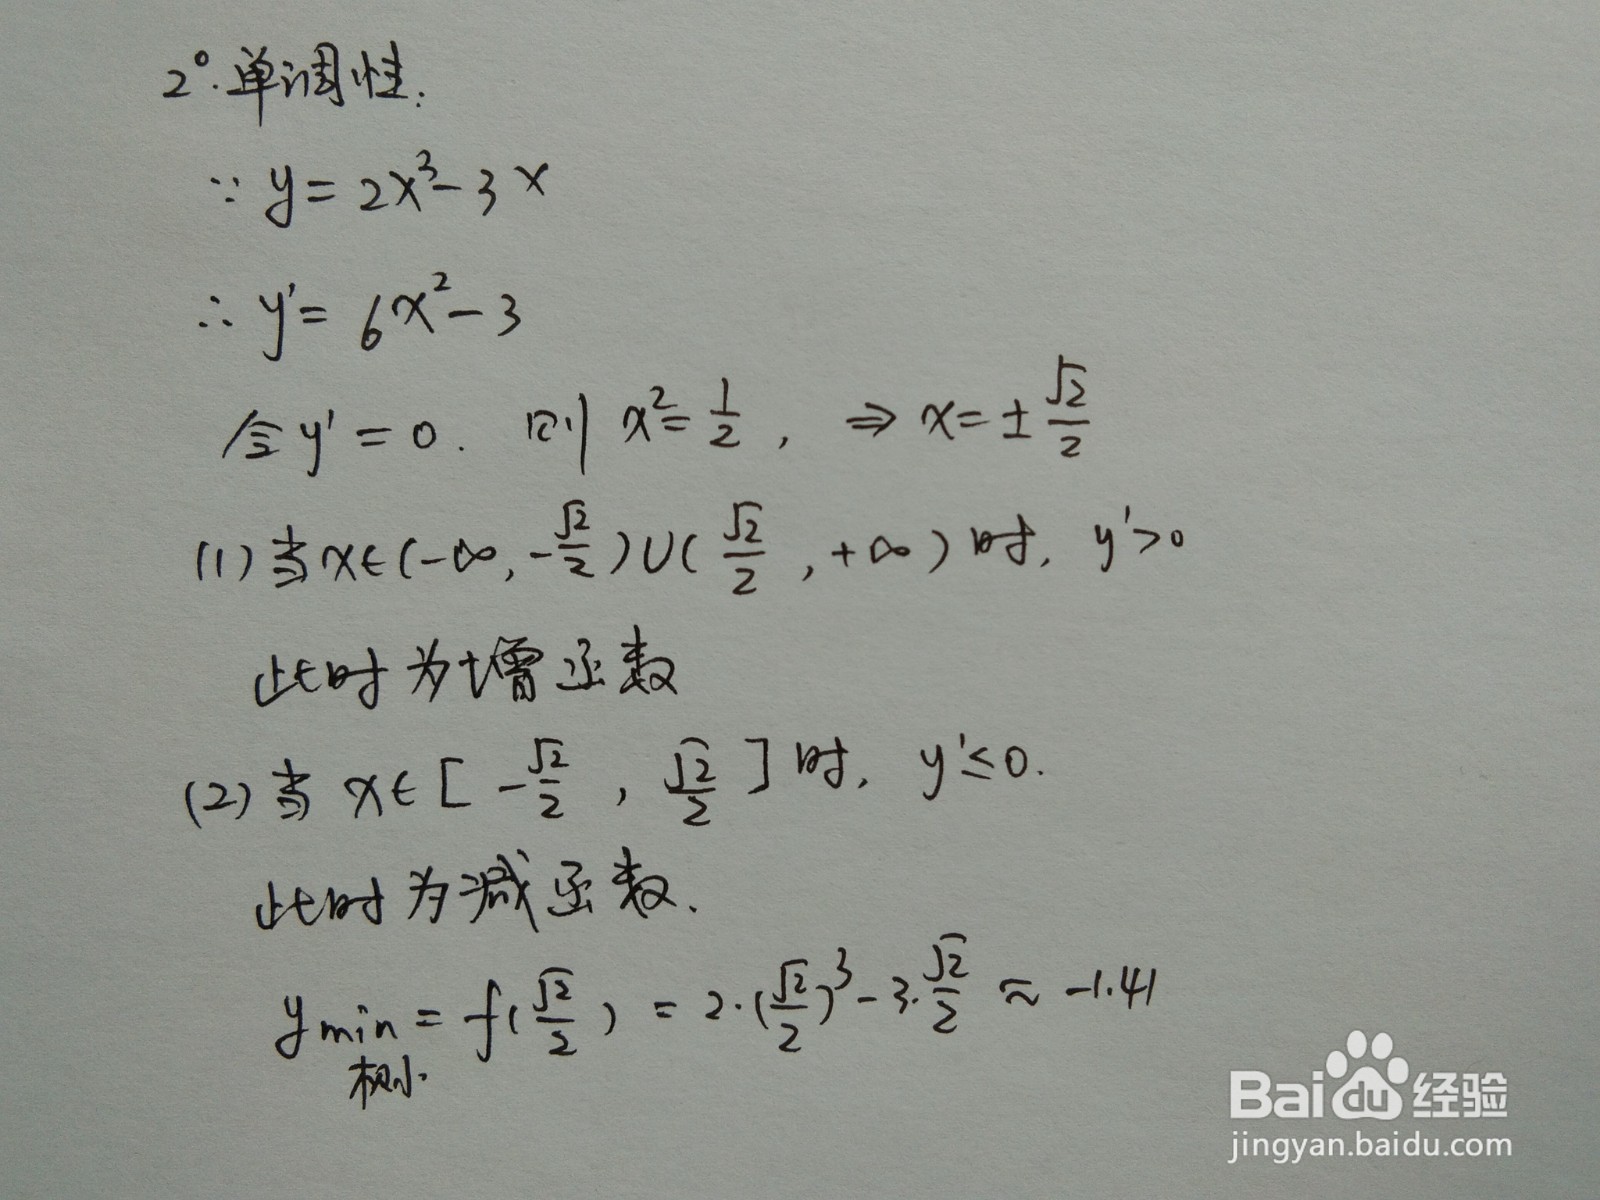 2°.单调性:
∵ y = 2x³ - 3x
∴ y' = 6x² - 3
令 y' = 0. 则 x² = 1/2, ⇒ x = ± √2/2
(1) 当 x∈(-∞, -√2/2)∪(√2/2, +∞)时, y'>0
此时为增函数
(2) 当 x∈[-√2/2, √2/2]时, y'≤0.
此时为减函数.
y min = f(√2/2) = 2·(√2/2)³ - 3·√2/2 ≈ -1.41
极小
Baidu 经验
jingyan.baidu.com